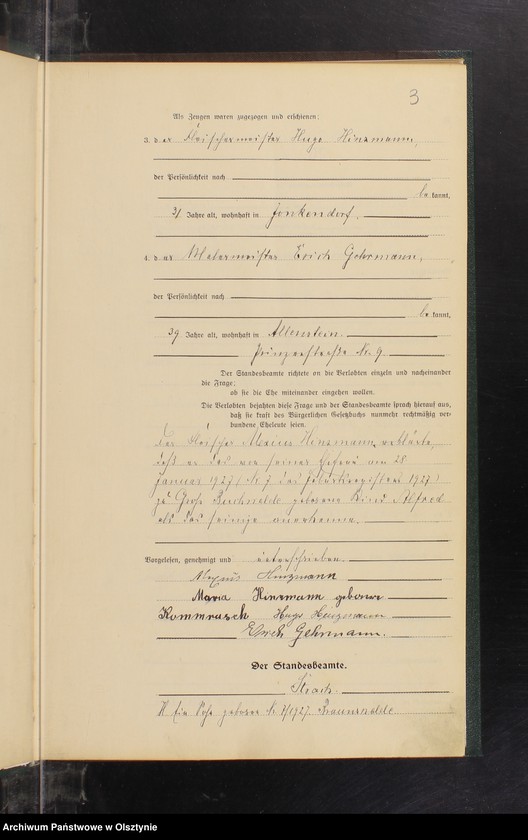 3
Als Zeugen waren zugezogen und erschienen:
3. der Fleischermeister Hugo Hinzmann,
der Persönlichkeit nach
bekannt,
31 Jahre alt, wohnhaft in Jonkendorf.
4. der Malermeister Erich Gehrmann,
der Persönlichkeit nach
bekannt,
39 Jahre alt, wohnhaft in Allenstein.
Nr. 9
Der Standesbeamte richtete an die Verlobten einzeln und nacheinander
die Frage:
ob sie die Ehe miteinander eingehen wollen.
Die Verlobten bejahten diese Frage und der Standesbeamte sprach hierauf aus,
daß sie kraft des Bürgerlichen Gesetzbuchs nunmehr rechtmäßig ver-
bundene Eheleute seien.
Der Fleischer Hinzmann erklärte,
daß er das von seiner Ehefrau am 28
Januar 1927 (Nr. 7 des Geburtsregisters 1927)
zu Groß geborene Kind Alfred
als das seinige anerkenne.
Vorgelesen, genehmigt und unterschrieben.
Hinzmann
Maria Hinzmann geborene
Kommrasch Hugo Hinzmann
Erich Gehrmann.
Der Standesbeamte.
Ein Sohn geboren Nr. 7/1927. Braunswalde
Archiwum Państwowe w Olsztynie